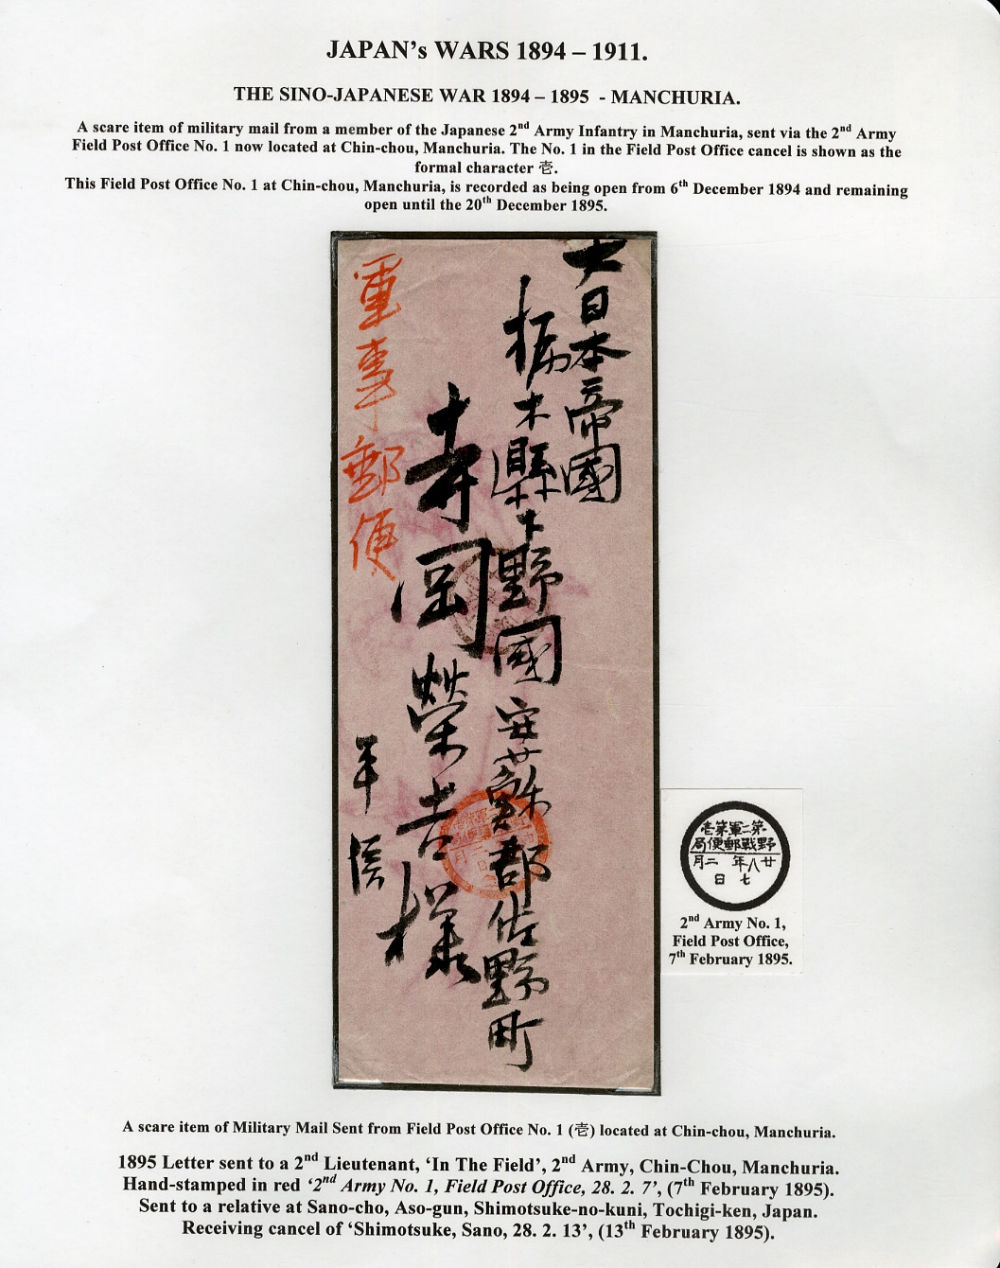 JAPAN's WARS 1894 – 1911.
THE SINO-JAPANESE WAR 1894 – 1895 - MANCHURIA.
A scare item of military mail from a member of the Japanese 2nd Army Infantry in Manchuria, sent via the 2nd Army
Field Post Office No. 1 now located at Chin-chou, Manchuria. The No. 1 in the Field Post Office cancel is shown as the
formal character 壱.
This Field Post Office No. 1 at Chin-chou, Manchuria, is recorded as being open from 6th December 1894 and remaining
open until the 20th December 1895.
大日本帝國
栃木縣下野國安蘇郡佐野町
寺岡榮吉様
平信
軍事郵便
第二軍第壱
野戦郵便局
廿八年 二月
七日
2nd Army No. 1,
Field Post Office,
7th February 1895.
A scare item of Military Mail Sent from Field Post Office No. 1 (壱) located at Chin-chou, Manchuria.
1895 Letter sent to a 2nd Lieutenant, ‘In The Field’, 2nd Army, Chin-Chou, Manchuria.
Hand-stamped in red ‘2nd Army No. 1, Field Post Office, 28. 2. 7’, (7th February 1895).
Sent to a relative at Sano-cho, Aso-gun, Shimotsuke-no-kuni, Tochigi-ken, Japan.
Receiving cancel of ‘Shimotsuke, Sano, 28. 2. 13’, (13th February 1895).